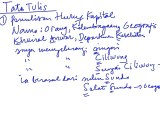 Tata Tulis
① Penulisan Huruf Kapital
Nama : Orang, Kelembagaan, Geografi
Khairul Anwar, Departemen
saya menyebrang sungai
Ciliwung
Sungai Ciliwung
ia berasal dari suku Sunda
Selat Sunda → Geog